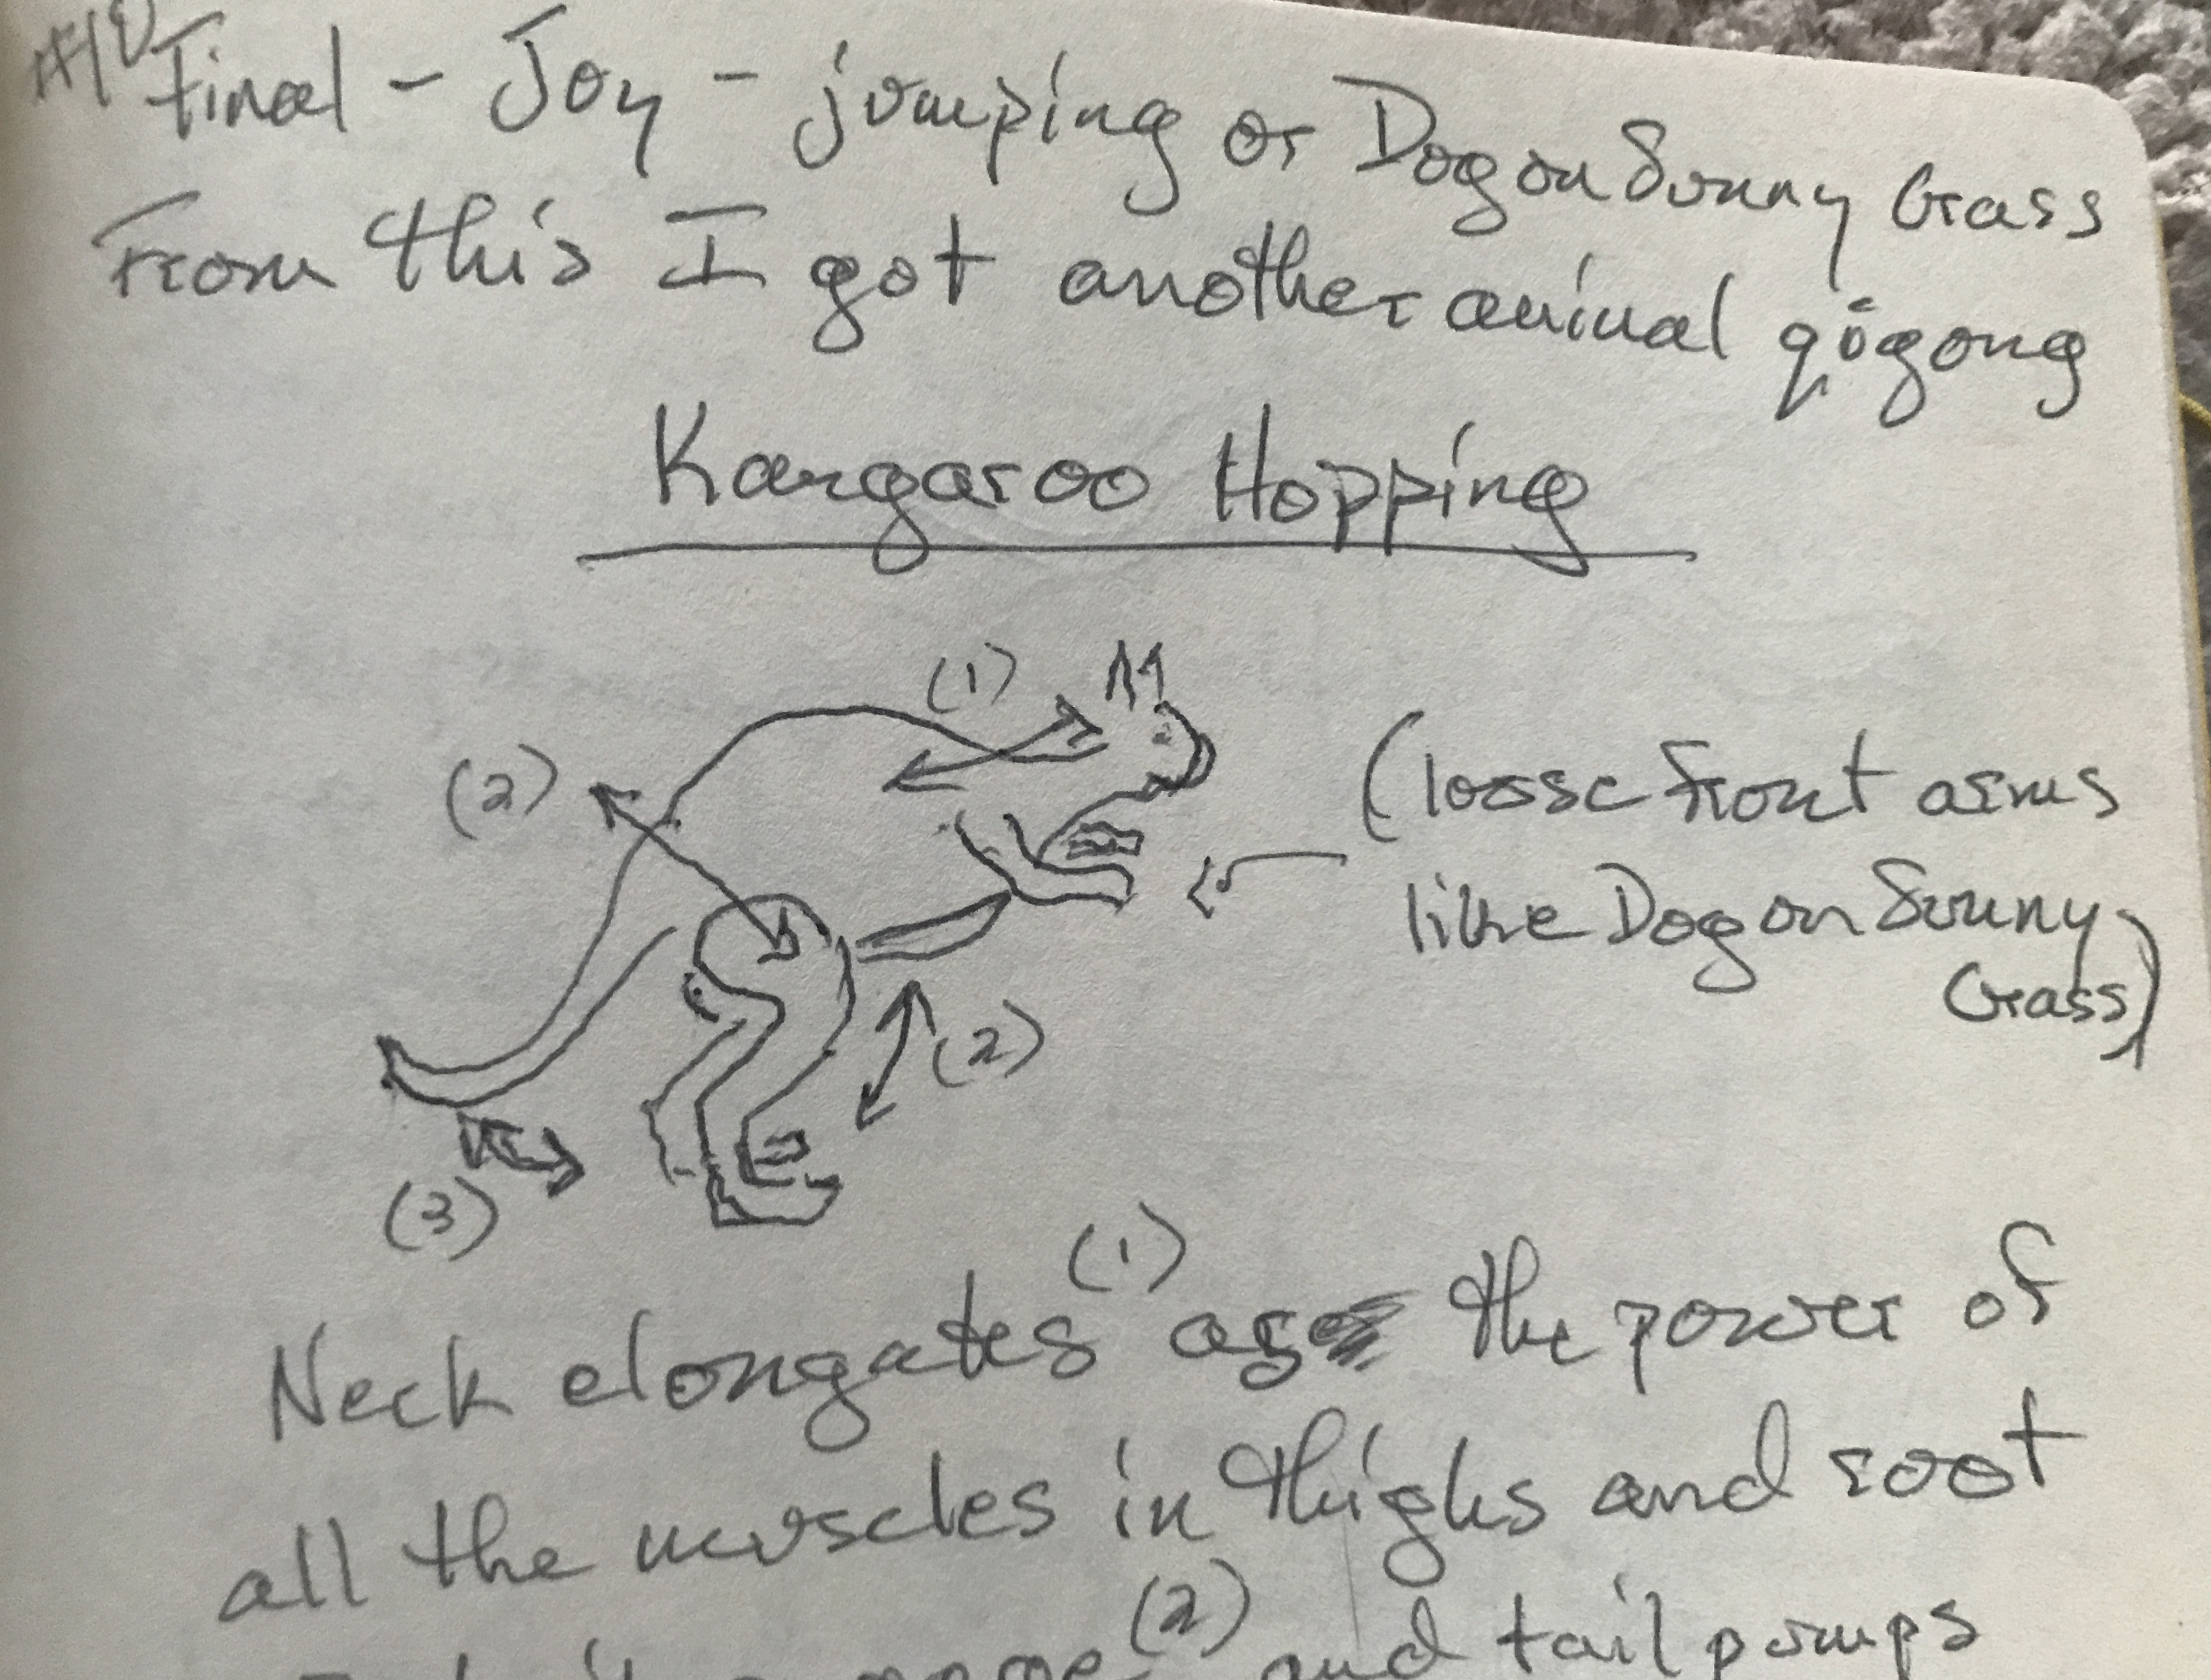 Final - Joy - jumping or Dog on Sunny Grass
From this I got another animal qigong
Kangaroo Hopping
(1)
(2)
(loose front arms
like Dog on Sunny
Grass)
(2)
(3)
Neck elongates (1) as the power of
all the muscles in thighs and root
(2) and tail pumps